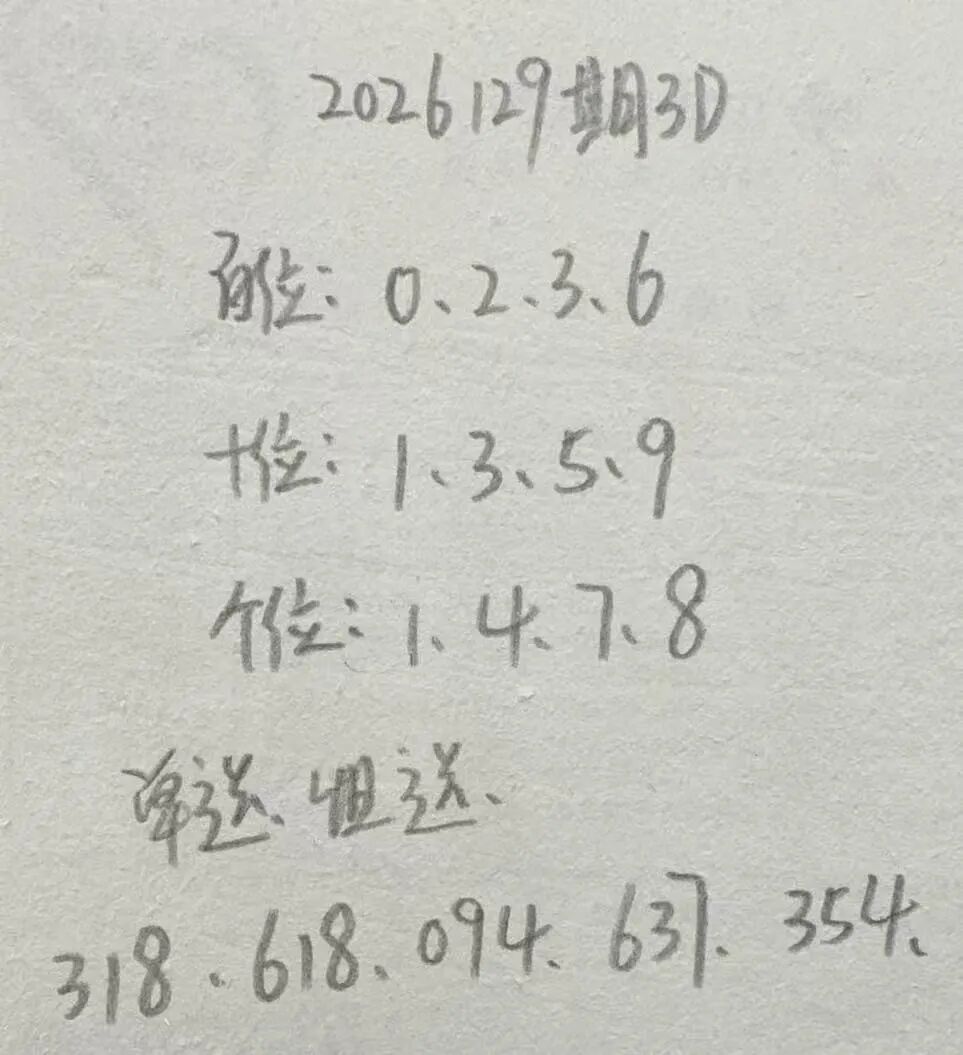 2026129期3D
百位：0、2、3、6
十位：1、3、5、9
个位：1、4、7、8
单送、组送、
318、618、094、637、354、